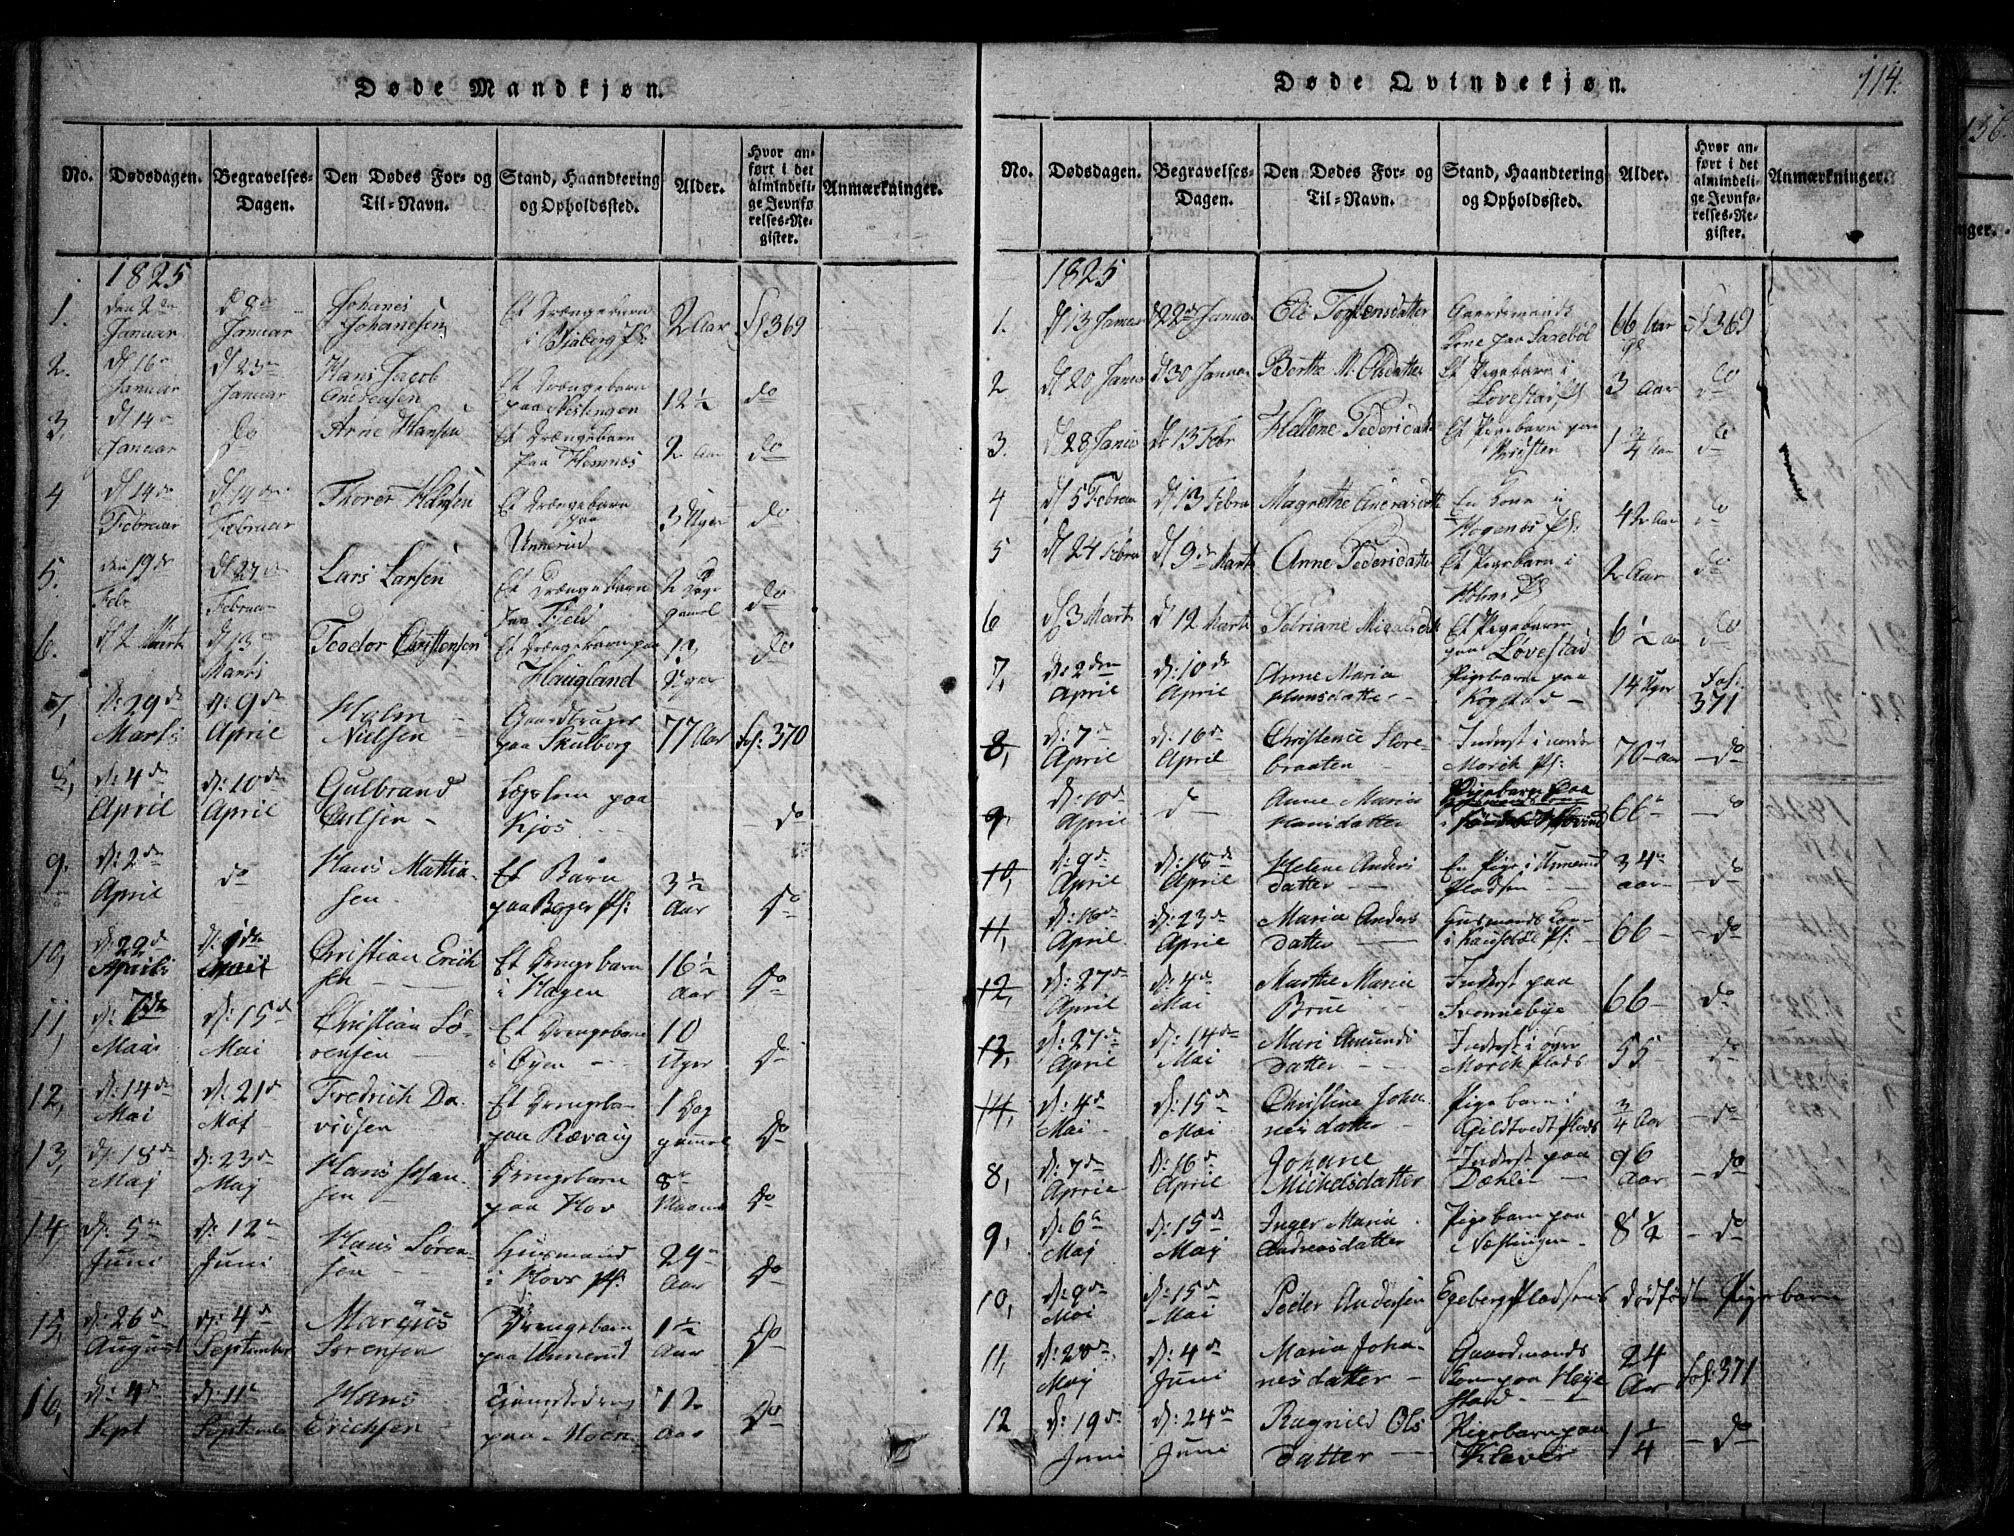 Døde Mandkjøn.
No.
Dødsdagen.
Begravelses-
Dagen.
Den Dødes For- og
Til-Navn.
Stand, Haandtering
og Opholdssted.
Alder.
Hvor an-
ført i det
almindeli-
ge Jevnfø
relses-Re-
gister.
Anmærkninger.
1825
1.
Januar
Januar
Johanes
Johanesen
Et Drængebarn
2 Aar
369
2.
Januar
Januar
Hans Jacob
Et Drængebarn
paa Nestengen
12½
do
3.
Januar
do
Arne Hansen
Et Drængebarn
paa Hemnes
2 Aar
do
4
Februar
Februar
Thorer Hansen
Et Drængebarn
paa
Unnerud
3 Uger
do
5.
den 19de
Febr
Februar
Lars Larsen
Et Drængebarn
paa Field
2 Dage
gamel
do
6.
d: 2 Marts
d: 13
Marts
Teodor Christensen
Et Drængebarn paa
Haugland
12
Uger
do
7,
D: 29 de
Marts
d: 9 de
April
Holm
Nielsen
Gaardbruger
paa Skulberg
77 Aar
fol: 370
8,
d: 4 de
April
d: 10 de
April
Gulbrand
Carlsen
Lægslem paa
Kjos
do
9.
d: 2 de
April
do
Hans Mathia-
sen
Et Barn
paa Boger Pl:
3½
Aar
do
10,
d: 22 de
Christian Erich
sen
Et Drengebarn
i Hagen
16½
Aar
do
11,
d: 7 de
Mai
d: 15 de
Mai
Christian Sø-
rensen
Et Drengebarn
i Øyen
10
Uger
do
12,
d: 14 de
Mai
d: 21 d
Mai
Fredrich Da-
vidsen
Et Drengeba-
paa Rævaug
1 Dag
gammel
do
13,
d: 18 de
Maj
d: 23 de
Maj
Hans Han-
sen
Drengebarn
paa Hov
8
Maaned
do
14,
d: 5
Juni
d: 12
Juni
Hans Søren-
sen
Husmand
i Hovs Pl:
29
Aar
do
15,
d: 26 d
August
d: 4 d
September
Marcus
Sørensen
Drengebarn
paa Unnerud
1½
Aar
do
16,
d: 4 d
Sept
d: 11
September
Hans
Erichsen
paa Moen
12
Aar
do
Døde Qvindekjøn.
114.
No.
Dødsdagen.
Begravelses-
Dagen.
Den Dødes For- og
Til-Navn.
Stand, Haandtering
og Opholdssted.
Alder.
Hvor an-
ført i det
almindeli-
ge Jevnfø-
relses-Re-
gister.
Anmærkninger.
1825
1.
d 13 Januar
d 22 Januar
Eli Torstensdatter
Gaardmands
Kone paa Saxebøl
66 Aar
369
2
d 20 Janua
d 30 Januar
Berthe M. Olsdatter
Et Pigebarn i
Løvestad Pl
3 Aar
do
3.
d 28 Janua
d 13 Febr
Hellene Pedersdatter
Et Pigebarn paa
1 3/4 Aar
do
4
d 5 Februa
d 13 Februa
Magrethe Anderasdatte
En Kone i
Hogenæs Pl:
42 Aar
do
5
d 24 Februa
d 9 de Marts
Anne Pedersdatter
Et Pigebarn i
2 Aar
do
6
d 3 Marts
d 12 Marts
Et Pigebarn
paa Løvestad
6½ Aar
do
7,
d: 2 den
April
d: 10 de
April
Anne Maria
Hansdatter
Pigebarn paa
Kogstad
14 Uger
Fol:
371
8,
d: 7 de
April
d: 16 de
April
Christence Flore-
braaten
Inderst i nordre
Mørch Pl:
70 Aar
do
9,
d: 10 d
April
do
Anne Maria
Hansdatter
Pigebarn Paa
66
do
10,
d: 9 d
April
d: 18 de
April
Helene Anders
datter
En Pige i Unnerud
Pladsen
34
aar
do
11,
d: 16 de
April
d: 23 de
April
Maria Anders
datter
Husmands Kone
66
do
12,
d: 27 de
April
d: 4 de
Mai
Marthe Maria
Brue
Inderst paa
Tronnebye
66
do
13,
d: 27 d
April
d: 14 de
Mai
Mari Amunds
datter
Inderst i øvre
Mørch Plads
55
do
14,
d: 4 d
Mai
d: 15 d
Mai
Christine Joha-
nesdatter
Pige barn i
Gildtvedt Plads
3/4 Aar
do
8,
d: 7 de
April
d: 16 de
April
Johane
Michelsdatter
Inderst paa
Dæhlie
96
Aar
do
9,
d: 6
Maj
d: 15 d
Maj
Inger Maria
Andreasdatter
Pigebarn paa
Næstingen
8½
do
10,
d: 9 d
Mai
d: 15 d
Mai
Peder Andersen
Egeberg Pladsens dødfødte Pigebarn
11,
d: 20 d
Maj
d: 4 d
Juni
Maria Joha-
nesdatter
Gaardmands
Kone paa Høje
stad
24
Aar
fol: 371
12
d: 19 d
Juni
d: 24 d
Juni
Ragnild Ols
datter
Pigebarn paa
Kløver
1 1/4
do